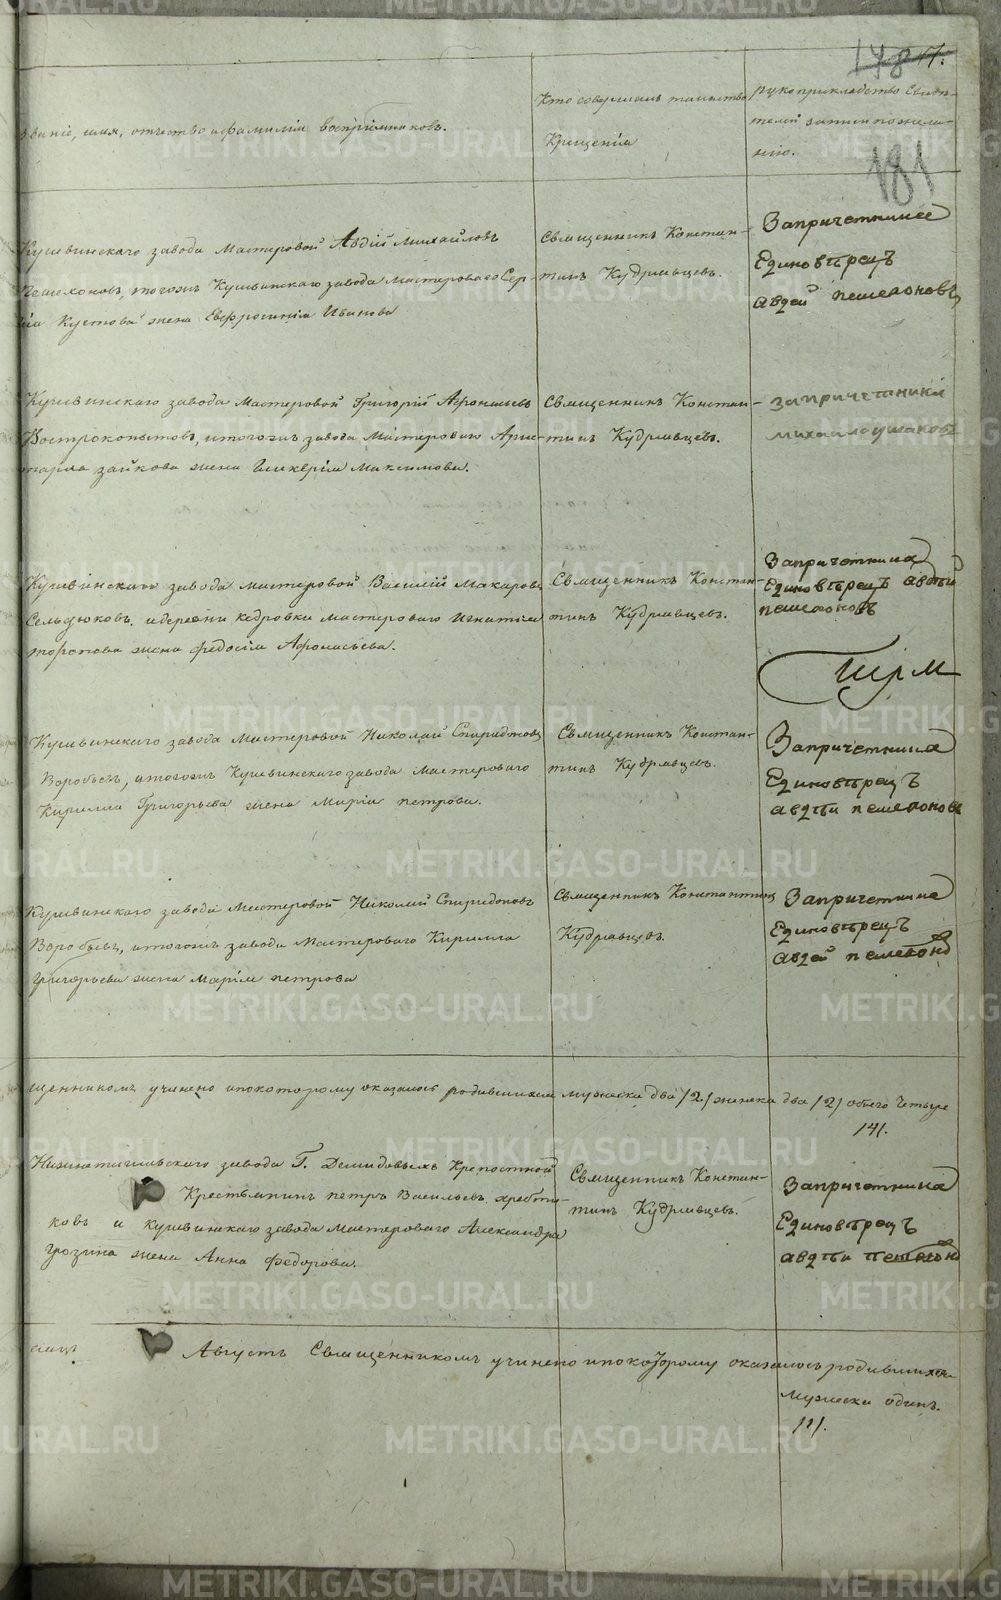 178 17.
181
Званіе, имя, отчество и фамилія воспріемниковъ.
Кто совершалъ таинство
Крещенія
рукоприкладство свидѣ-
телей записи по жела-
нію.
Кушвинскаго завода мастеровой Авдій Михайловъ
Пешехоновъ, тогожъ Кушвинскаго завода мастероваго Сер-
гія Кустова жена Евфросинія Иванова
Священникъ Констан-
тинъ Кудрявцевъ.
Запричетника
Единовѣрецъ
авдей пешехоновъ
Кушвинскаго завода мастеровой Григорій Афонасьевъ
Вострокопытовъ, итогожъ завода мастероваго
Зайкова жена Гликерія Максимова.
Священникъ Констан-
тинъ Кудрявцевъ.
запричетника
михайло ушаковъ
Кушвинскаго завода мастеровой Василій Макаровъ
Сельдюковъ. и деревни Кедровки мастероваго Игнатія
торопова жена федосія Афонасьева.
Священникъ Констан-
тинъ Кудрявцевъ.
Запричетника
Единовѣрецъ авдѣй
пешехоновъ
Кушвинскаго завода мастеровой Николай Спиридоновъ
Воробьевъ, итогожъ Кушвинскаго завода мастероваго
Кирилла Григорьева жена Марія петрова.
Священникъ Констан-
тинъ Кудрявцевъ.
Запричетника
Единовѣрецъ
авдѣй пешехоновъ
Кушвинскаго завода мастеровой Николай Спиридоновъ
Воробьевъ, итогожъ завода мастероваго Кирилла
Григорьева жена Марія петрова
Священникъ Константинъ
Кудрявцевъ.
Запричетника
Единовѣрецъ
авдей пешехоновъ
щенникомъ учинено ипокоторому оказалось родившихся мужеска два /2/ женска два /2/ обоего четыре
/4/.
Нижнетагильскаго завода Г. Демидовыхъ Крепостной
Крестьянинъ петръ Васильевъ хребти-
ковъ и кушвинскаго завода мастероваго Александра
грозина жена Анна Федорова.
Священникъ Констан-
тинъ Кудрявцевъ.
Запричетника
Единовѣрецъ
авдѣй пешехоновъ
Августъ Священникомъ учинено ипокоторому оказалось родившихся
мужеска одинъ.
/1/.
METRIKI.GASO-URAL.RU